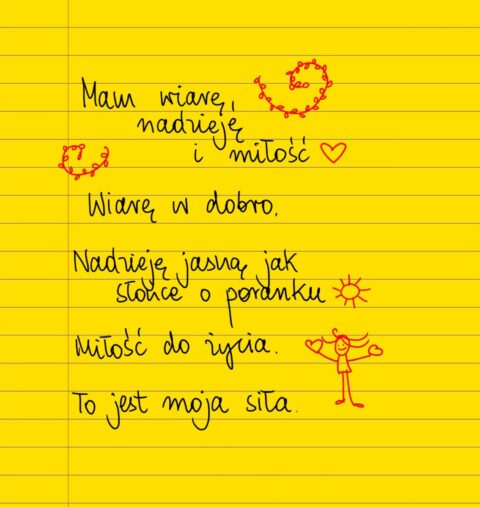 Mam wiarę,
nadzieję
i miłość
Wiarę w dobro.
Nadzieję jasną jak
słońce o poranku
Miłość do życia.
To jest moja siła.